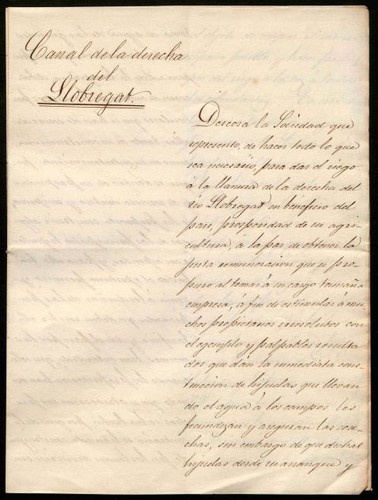 Canal de la derecha
del
Llobregat.
Deseosa la Sociedad que
represento, de hacer todo lo que
sea necesario, para dar el riego
á la llanura de la derecha del
rio Llobregat en beneficio del
pais, prosperidad de su agri-
cultura, á la par de obtener la
justa remuneracion que se pro-
puso al tomar á su cargo tamaña
empresa, á fin de estimular á mu-
chos propietarios irresolutos con
el ejemplo y palpables resulta-
dos que dán la inmediata cons-
truccion de hijuelas que llevan-
do el agua á los campos los
fecundizan y aseguran las cose-
chas, sin embargo de que dichas
hijuelas desde su arranque y